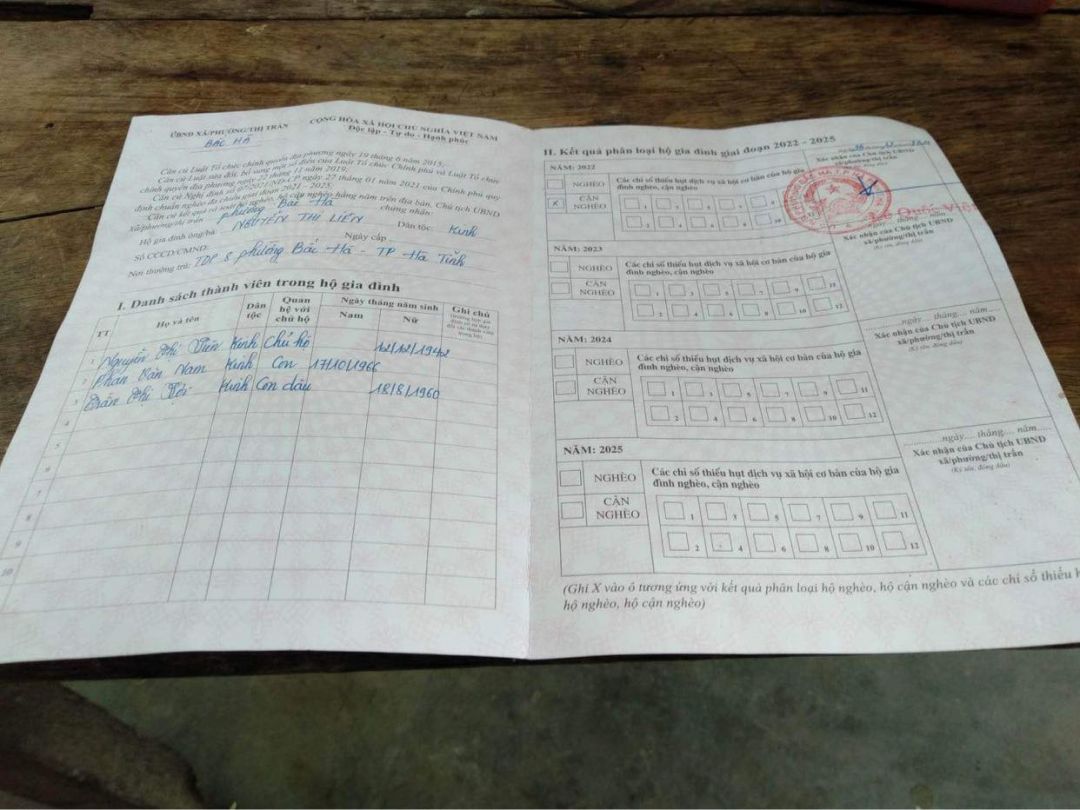 UBND XÃ/PHƯỜNG/THỊ TRẤN
BẮC HÀ
CỘNG HÒA XÃ HỘI CHỦ NGHĨA VIỆT NAM
Độc lập - Tự do - Hạnh phúc
Căn cứ Luật Tổ chức chính quyền địa phương ngày 19 tháng 6 năm 2015;
Căn cứ Luật sửa đổi, bổ sung một số điều của Luật Tổ chức Chính phủ và Luật Tổ chức
chính quyền địa phương ngày 22 tháng 11 năm 2019;
Căn cứ Nghị định số 07/2021/NĐ-CP ngày 27 tháng 01 năm 2021 của Chính phủ quy
định chuẩn nghèo đa chiều giai đoạn 2021 - 2025;
Căn cứ kết quả rà soát hộ nghèo, hộ cận nghèo hằng năm trên địa bàn, Chủ tịch UBND
xã/phường/thị trấn phường Bắc Hà chứng nhận:
Hộ gia đình ông/bà: NGUYỄN THỊ LIÊN Dân tộc: Kinh
Số CCCD/CMND: Ngày cấp
Nơi thường trú: TDP 8 phường Bắc Hà - TP Hà Tĩnh
I. Danh sách thành viên trong hộ gia đình
TT Họ và tên Dân tộc Quan hệ với chủ hộ Ngày tháng năm sinh Nam Nữ Ghi chú
1 Nguyễn Thị Kinh Chủ hộ 12/12/1942
2 Phan Văn Nam Kinh Con 17/10/1966
3 Trần Thị Kinh Con dâu 18/8/1960
4
5
6
7
8
9
10
II. Kết quả phân loại hộ gia đình giai đoạn 2022 - 2025
NĂM: 2022
NGHÈO
x CẬN NGHÈO
Các chỉ số thiếu hụt dịch vụ xã hội cơ bản của hộ gia
đình nghèo, cận nghèo
1 3 5 7 9
2 4 6 8 10
Xác nhận của Chủ tịch UBND
xã/phường/thị trấn
Quốc
NĂM: 2023
NGHÈO
CẬN NGHÈO
Các chỉ số thiếu hụt dịch vụ xã hội cơ bản của hộ gia
đình nghèo, cận nghèo
1 3 5 7 9 11
2 4 6 8 10 12
ngày.... tháng.... năm
Xác nhận của Chủ tịch UBND
xã/phường/thị trấn
(Ký tên, đóng dấu)
NĂM: 2024
NGHÈO
CẬN NGHÈO
Các chỉ số thiếu hụt dịch vụ xã hội cơ bản của hộ gia
đình nghèo, cận nghèo
1 3 5 7 9 11
2 4 6 8 10 12
......ngày.... tháng.... năm......
Xác nhận của Chủ tịch UBND
xã/phường/thị trấn
(Ký tên, đóng dấu)
NĂM: 2025
NGHÈO
CẬN NGHÈO
Các chỉ số thiếu hụt dịch vụ xã hội cơ bản của hộ gia
đình nghèo, cận nghèo
1 3 5 7 9 11
2 4 6 8 10 12
..........ngày.... tháng.... năm......
Xác nhận của Chủ tịch UBND
xã/phường/thị trấn
(Ký tên, đóng dấu)
(Ghi X vào ô tương ứng với kết quả phân loại hộ nghèo, hộ cận nghèo và các chỉ số thiếu
hộ nghèo, hộ cận nghèo)